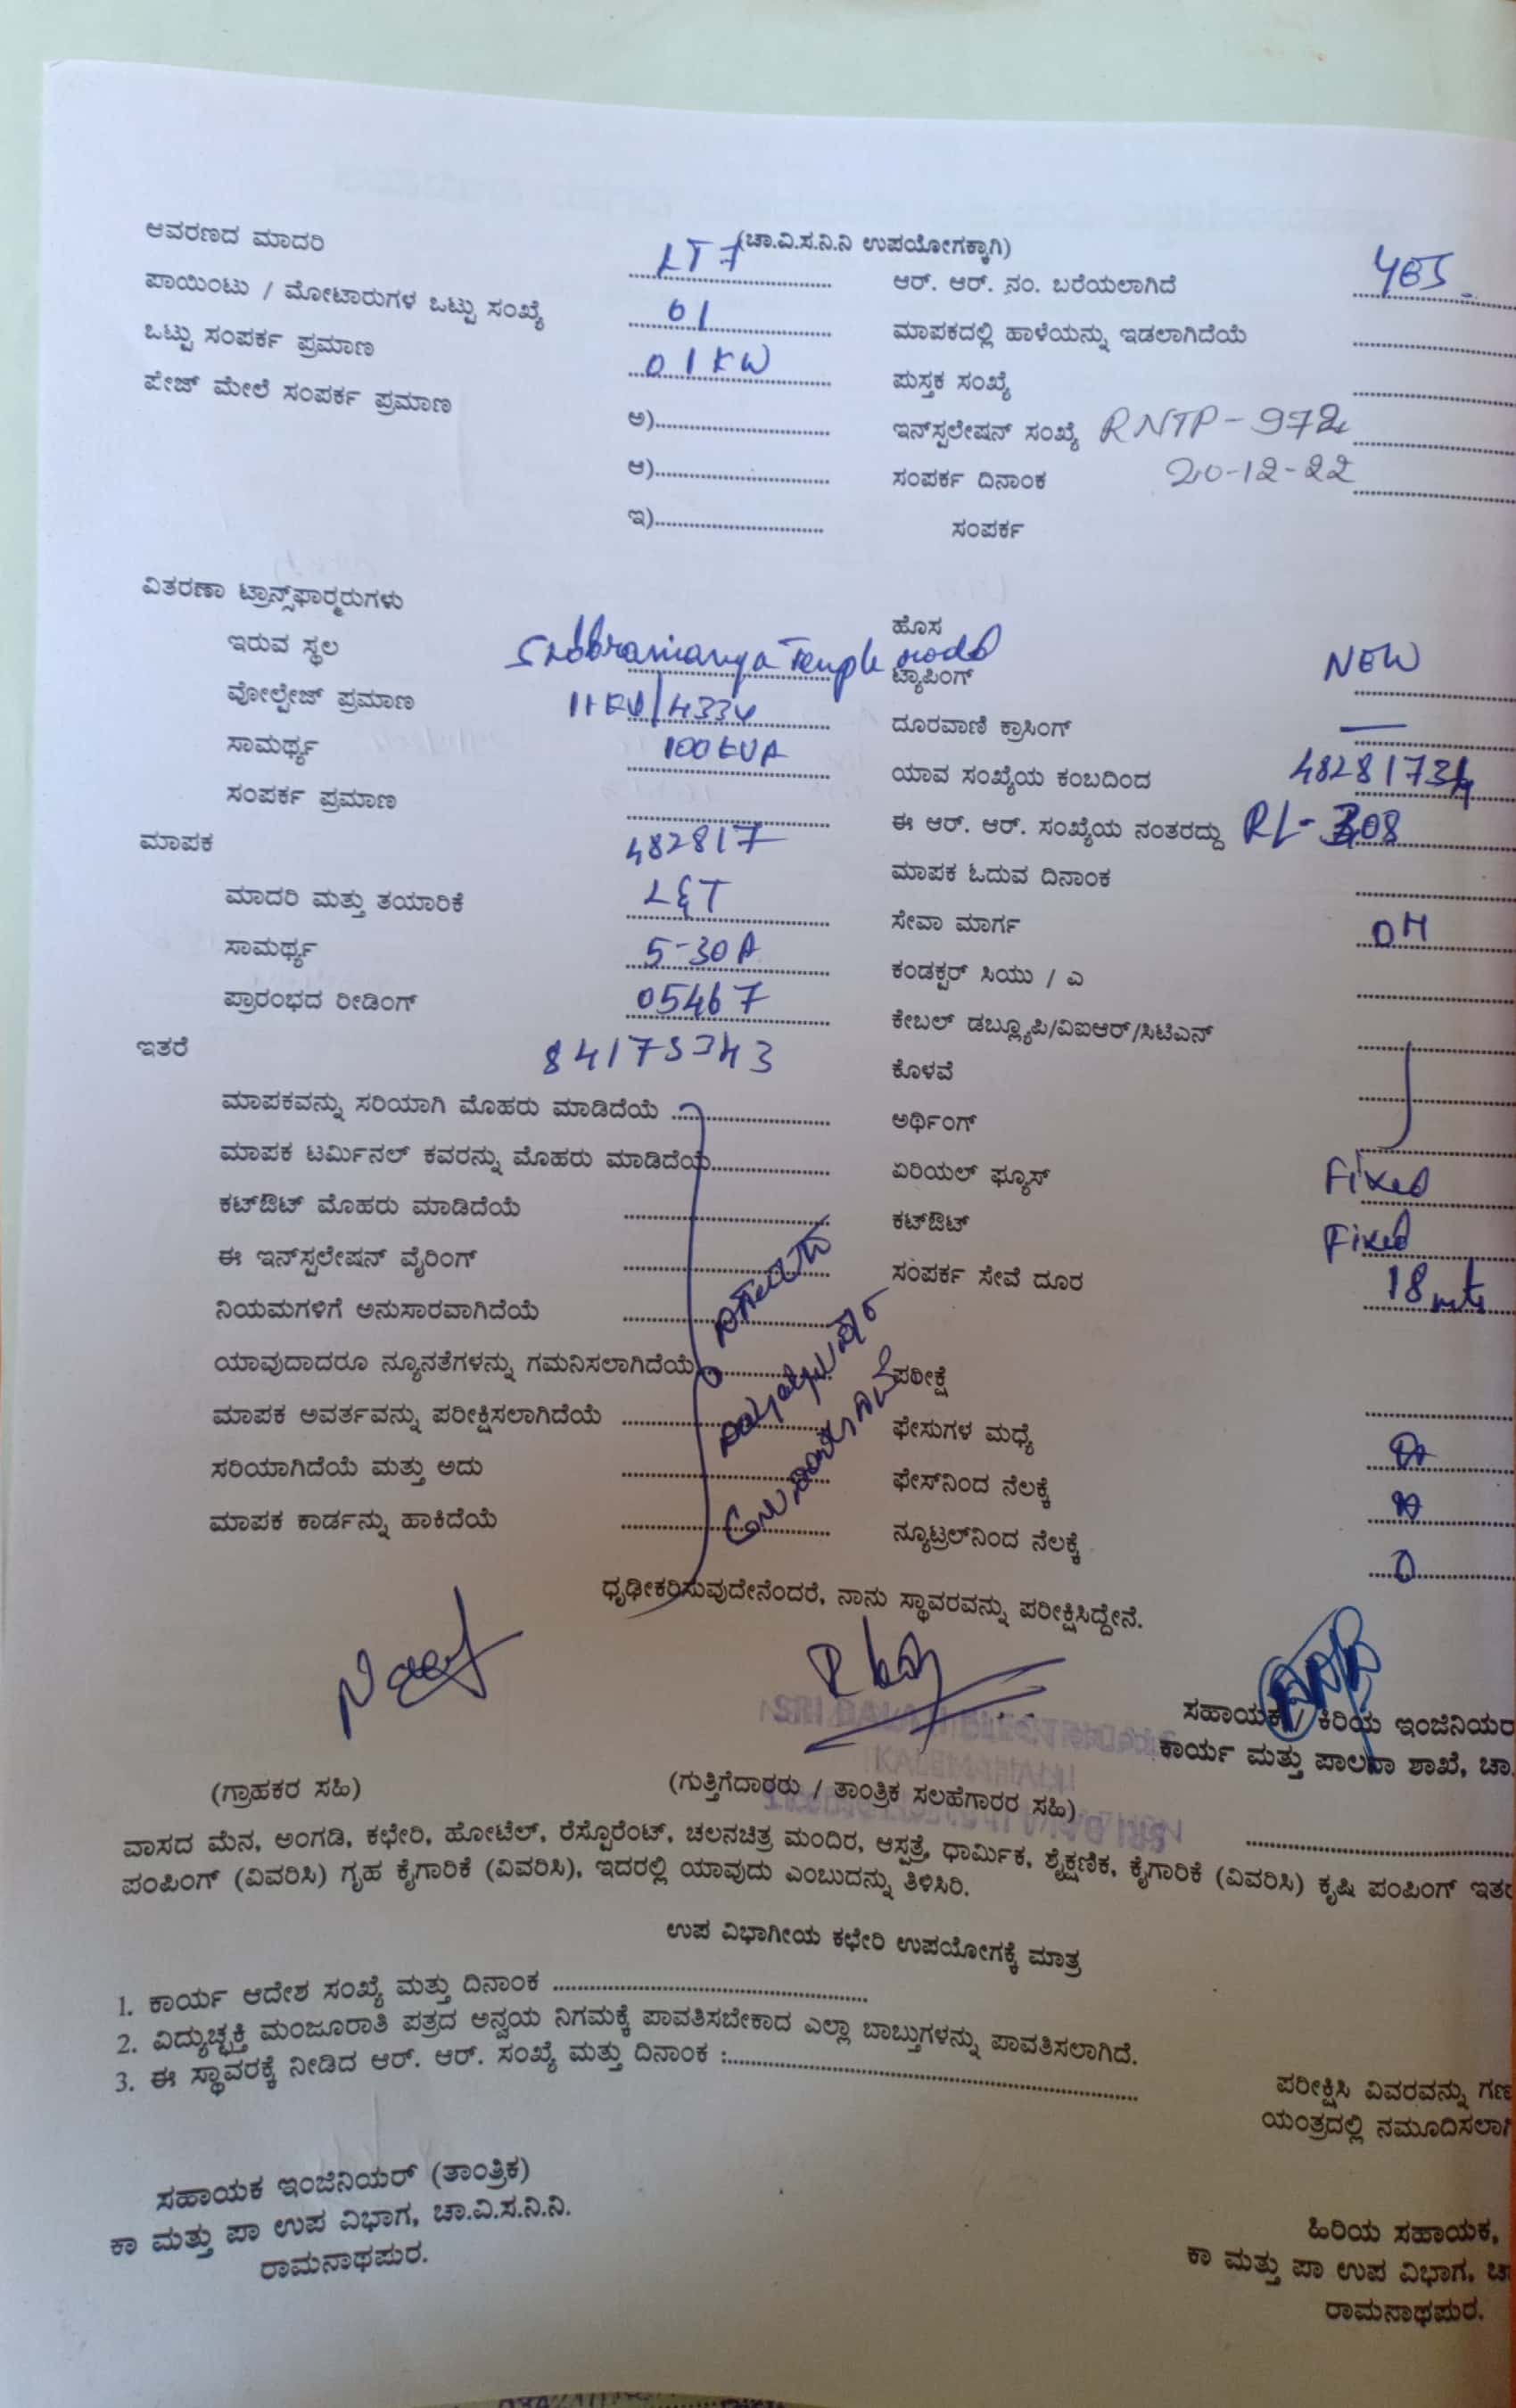 (ಚಾ.ವಿ.ಸ.ನಿ.ನಿ ಉಪಯೋಗಕ್ಕಾಗಿ)
ಆವರಣದ ಮಾದರಿ LT 7
ಆರ್. ಆರ್. ನಂ. ಬರೆಯಲಾಗಿದೆ YES
ಪಾಯಿಂಟು / ಮೋಟಾರುಗಳ ಒಟ್ಟು ಸಂಖ್ಯೆ 01
ಮಾಪಕದಲ್ಲಿ ಹಾಳೆಯನ್ನು ಇಡಲಾಗಿದೆಯೆ
ಒಟ್ಟು ಸಂಪರ್ಕ ಪ್ರಮಾಣ 01 KW
ಪುಸ್ತಕ ಸಂಖ್ಯೆ
ಪೇಜ್ ಮೇಲೆ ಸಂಪರ್ಕ ಪ್ರಮಾಣ
ಅ)
ಇನ್‌ಸ್ಪಲೇಷನ್ ಸಂಖ್ಯೆ RNTP-972
ಆ)
ಸಂಪರ್ಕ ದಿನಾಂಕ 20-12-22
ಇ)
ಸಂಪರ್ಕ
ವಿತರಣಾ ಟ್ರಾನ್ಸ್‌ಫಾರ್ಮರುಗಳು
ಹೊಸ
ಇರುವ ಸ್ಥಲ Subbramanya Temple
ಟ್ಯಾಪಿಂಗ್ NEW
ವೋಲ್ಟೇಜ್ ಪ್ರಮಾಣ 11KV/433V
ದೂರವಾಣಿ ಕ್ರಾಸಿಂಗ್ —
ಸಾಮರ್ಥ್ಯ 100KVA
ಯಾವ ಸಂಖ್ಯೆಯ ಕಂಬದಿಂದ
ಸಂಪರ್ಕ ಪ್ರಮಾಣ
ಈ ಆರ್. ಆರ್. ಸಂಖ್ಯೆಯ ನಂತರದ್ದು
ಮಾಪಕ 482817
ಮಾಪಕ ಓದುವ ದಿನಾಂಕ
ಮಾದರಿ ಮತ್ತು ತಯಾರಿಕೆ L&T
ಸೇವಾ ಮಾರ್ಗ OH
ಸಾಮರ್ಥ್ಯ 5-30A
ಕಂಡಕ್ಟರ್ ಸಿಯು / ಎ
ಪ್ರಾರಂಭದ ರೀಡಿಂಗ್ 05467
ಕೇಬಲ್ ಡಬ್ಲ್ಯೂಪಿ/ವಿಐಆರ್/ಸಿಟಿಎನ್
ಇತರೆ
ಕೊಳವೆ
ಮಾಪಕವನ್ನು ಸರಿಯಾಗಿ ಮೊಹರು ಮಾಡಿದೆಯೆ
ಅರ್ಥಿಂಗ್
ಮಾಪಕ ಟರ್ಮಿನಲ್ ಕವರನ್ನು ಮೊಹರು ಮಾಡಿದೆಯೆ
ಏರಿಯಲ್ ಫ್ಯೂಸ್ Fixed
ಕಟ್‌ಔಟ್ ಮೊಹರು ಮಾಡಿದೆಯೆ
ಕಟ್‌ಔಟ್ Fixed
ಈ ಇನ್‌ಸ್ಪಲೇಷನ್ ವೈರಿಂಗ್
ಸಂಪರ್ಕ ಸೇವೆ ದೂರ 18 mts
ನಿಯಮಗಳಿಗೆ ಅನುಸಾರವಾಗಿದೆಯೆ
ಯಾವುದಾದರೂ ನ್ಯೂನತೆಗಳನ್ನು ಗಮನಿಸಲಾಗಿದೆಯೆ
ಪರೀಕ್ಷೆ
ಮಾಪಕ ಅವರ್ತವನ್ನು ಪರೀಕ್ಷಿಸಲಾಗಿದೆಯೆ
ಫೇಸುಗಳ ಮಧ್ಯೆ
ಸರಿಯಾಗಿದೆಯೆ ಮತ್ತು ಅದು
ಫೇಸ್‌ನಿಂದ ನೆಲಕ್ಕೆ
ಮಾಪಕ ಕಾರ್ಡನ್ನು ಹಾಕಿದೆಯೆ
ನ್ಯೂಟ್ರಲ್‌ನಿಂದ ನೆಲಕ್ಕೆ
ಧೃಢೀಕರಿಸುವುದೇನೆಂದರೆ, ನಾನು ಸ್ಥಾವರವನ್ನು ಪರೀಕ್ಷಿಸಿದ್ದೇನೆ.
ಸಹಾಯಕ / ಕಿರಿಯ ಇಂಜಿನಿಯರ
ಕಾರ್ಯ ಮತ್ತು ಪಾಲನಾ ಶಾಖೆ, ಚಾ.
(ಗ್ರಾಹಕರ ಸಹಿ)
(ಗುತ್ತಿಗೆದಾರರು / ತಾಂತ್ರಿಕ ಸಲಹೆಗಾರರ ಸಹಿ)
ವಾಸದ ಮೆನ, ಅಂಗಡಿ, ಕಛೇರಿ, ಹೋಟೆಲ್, ರೆಸ್ಟೊರೆಂಟ್, ಚಲನಚಿತ್ರ ಮಂದಿರ, ಆಸ್ಪತ್ರೆ, ಧಾರ್ಮಿಕ, ಶೈಕ್ಷಣಿಕ, ಕೈಗಾರಿಕೆ (ವಿವರಿಸಿ) ಕೃಷಿ ಪಂಪಿಂಗ್ ಇತರ
ಪಂಪಿಂಗ್ (ವಿವರಿಸಿ) ಗೃಹ ಕೈಗಾರಿಕೆ (ವಿವರಿಸಿ), ಇದರಲ್ಲಿ ಯಾವುದು ಎಂಬುದನ್ನು ತಿಳಿಸಿರಿ.
ಉಪ ವಿಭಾಗೀಯ ಕಛೇರಿ ಉಪಯೋಗಕ್ಕೆ ಮಾತ್ರ
1. ಕಾರ್ಯ ಆದೇಶ ಸಂಖ್ಯೆ ಮತ್ತು ದಿನಾಂಕ
2. ವಿದ್ಯುಚ್ಛಕ್ತಿ ಮಂಜೂರಾತಿ ಪತ್ರದ ಅನ್ವಯ ನಿಗಮಕ್ಕೆ ಪಾವತಿಸಬೇಕಾದ ಎಲ್ಲಾ ಬಾಬ್ತುಗಳನ್ನು ಪಾವತಿಸಲಾಗಿದೆ.
3. ಈ ಸ್ಥಾವರಕ್ಕೆ ನೀಡಿದ ಆರ್. ಆರ್. ಸಂಖ್ಯೆ ಮತ್ತು ದಿನಾಂಕ :
ಪರೀಕ್ಷಿಸಿ ವಿವರವನ್ನು ಗಣ
ಯಂತ್ರದಲ್ಲಿ ನಮೂದಿಸಲಾಗಿ
ಸಹಾಯಕ ಇಂಜಿನಿಯರ್ (ತಾಂತ್ರಿಕ)
ಕಾ ಮತ್ತು ಪಾ ಉಪ ವಿಭಾಗ, ಚಾ.ವಿ.ಸ.ನಿ.ನಿ.
ರಾಮನಾಥಪುರ.
ಹಿರಿಯ ಸಹಾಯಕ,
ಕಾ ಮತ್ತು ಪಾ ಉಪ ವಿಭಾಗ, ಚಾ
ರಾಮನಾಥಪುರ.